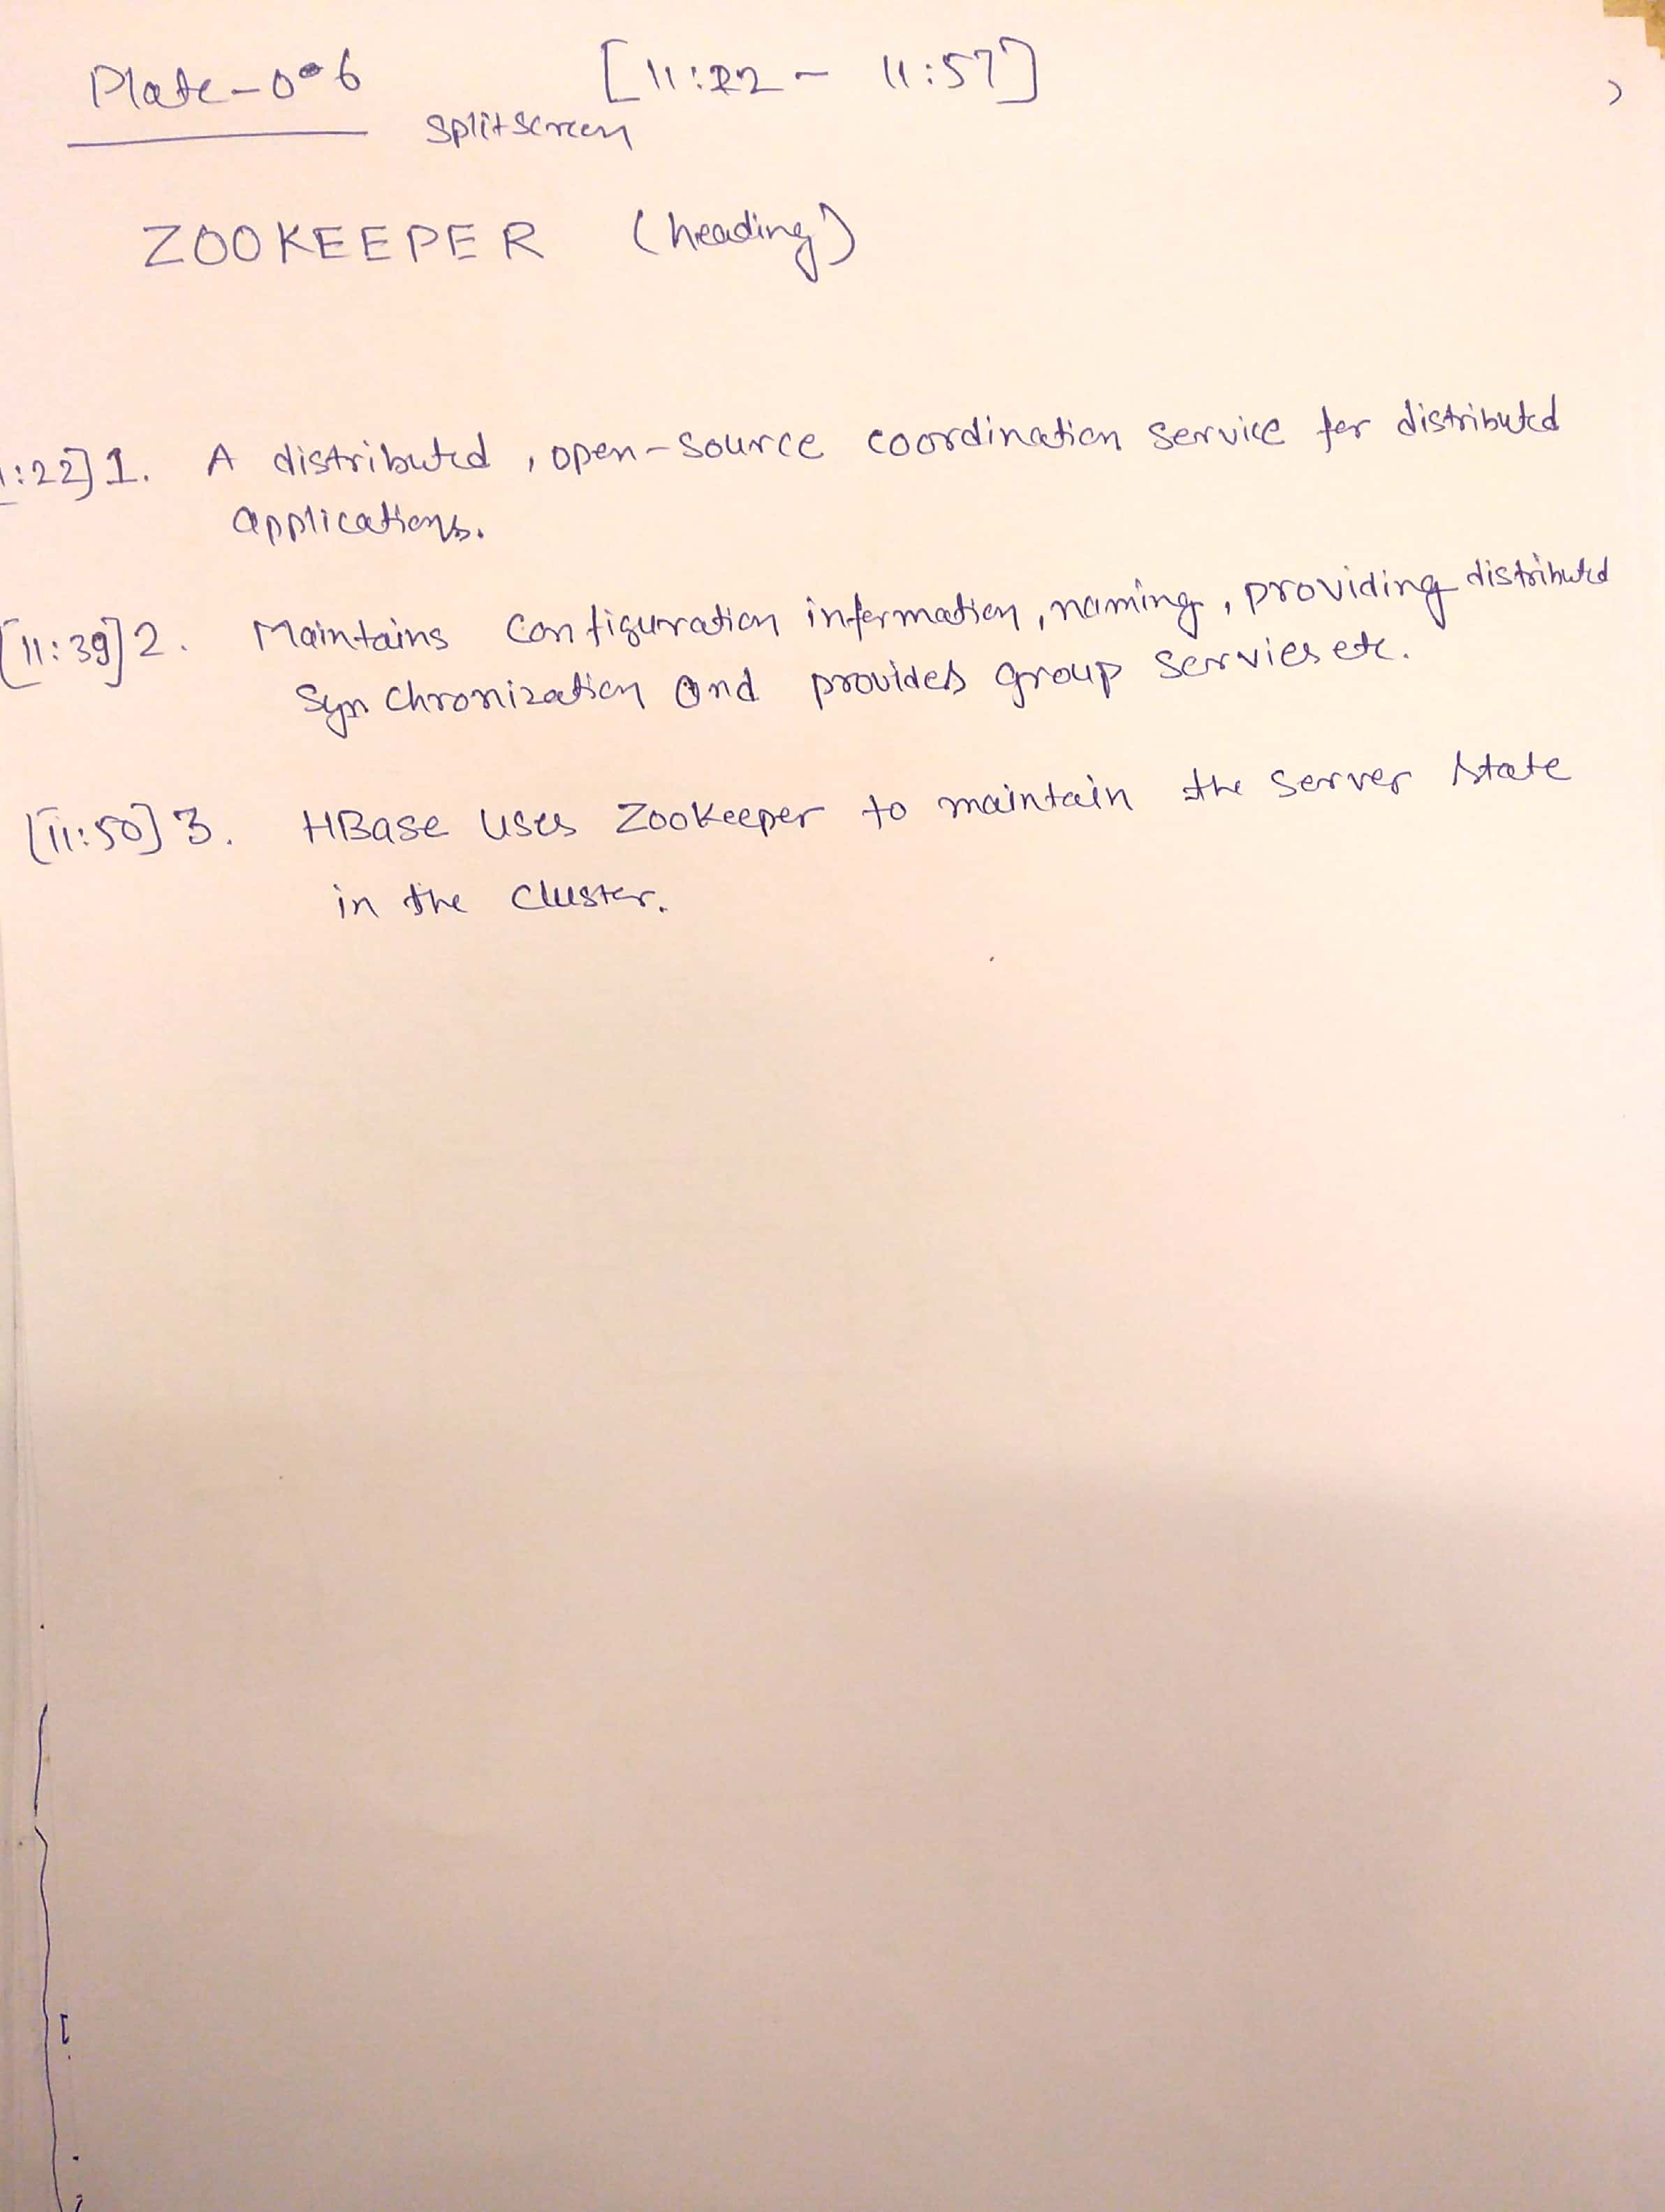 Plate-006 [11:22 - 11:57]
Splitscreen
ZOOKEEPER (heading)
:22] 1. A distributed, open-source coordination service for distributed
applications.
[11:39] 2. Maintains configuration information, naming, providing distributed
Synchronization and provides group servies etc.
[11:50] 3. HBase uses Zookeeper to maintain the server state
in the cluster.